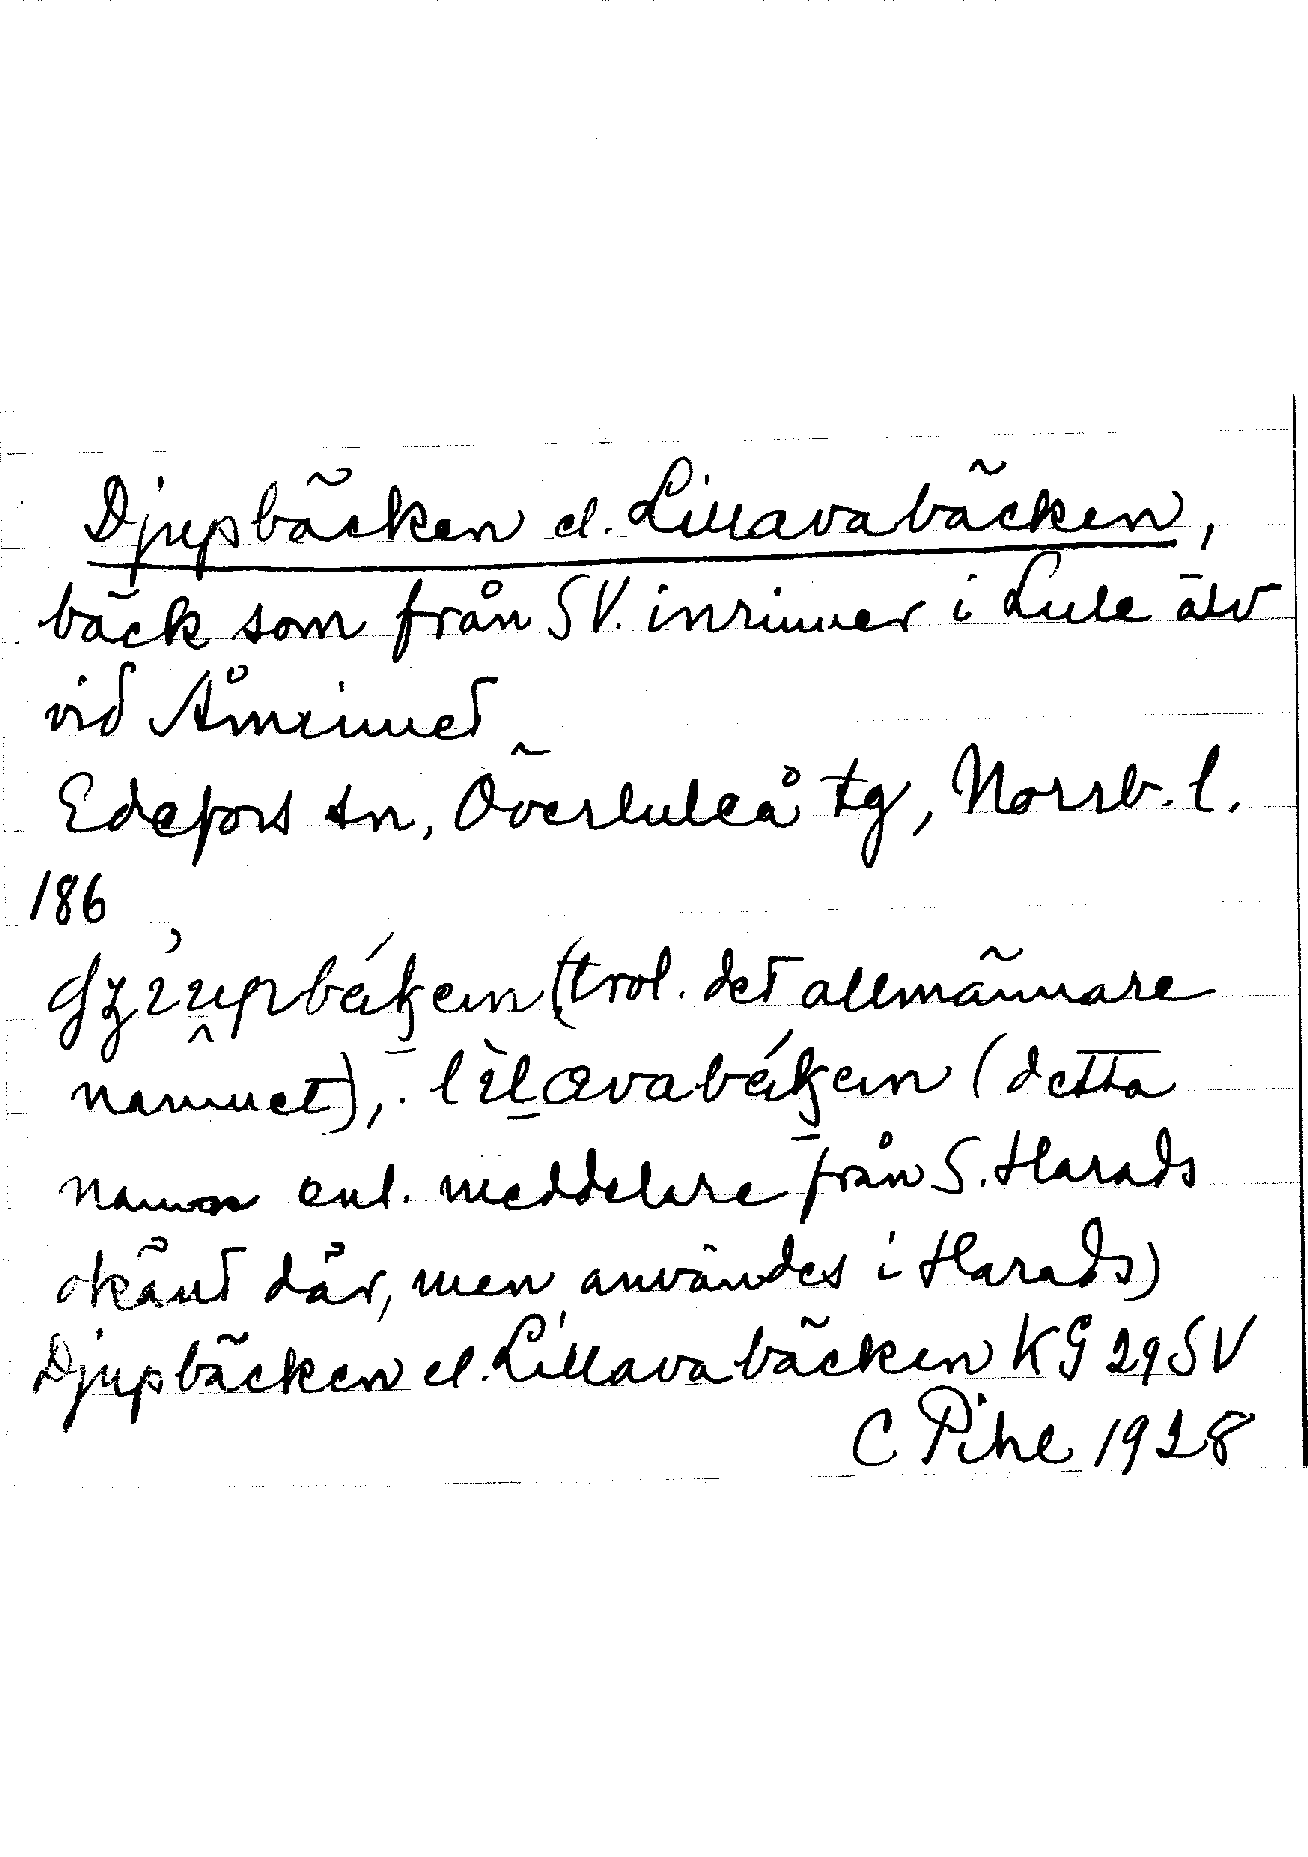 Djupbäcken el. Lillavabäcken,
bäck som från SV. inrinner i Lule älv
vid Åminnet
Edefors sn, Överluleå tg, Norrb. l.
186
(trol. det allmännare
namnet), (detta
namn enl. meddelare från S. Harads
okänt där, men användes i Harads)
Djupbäcken el. Lillavabäcken KG 29 SV
C Pihl 1928